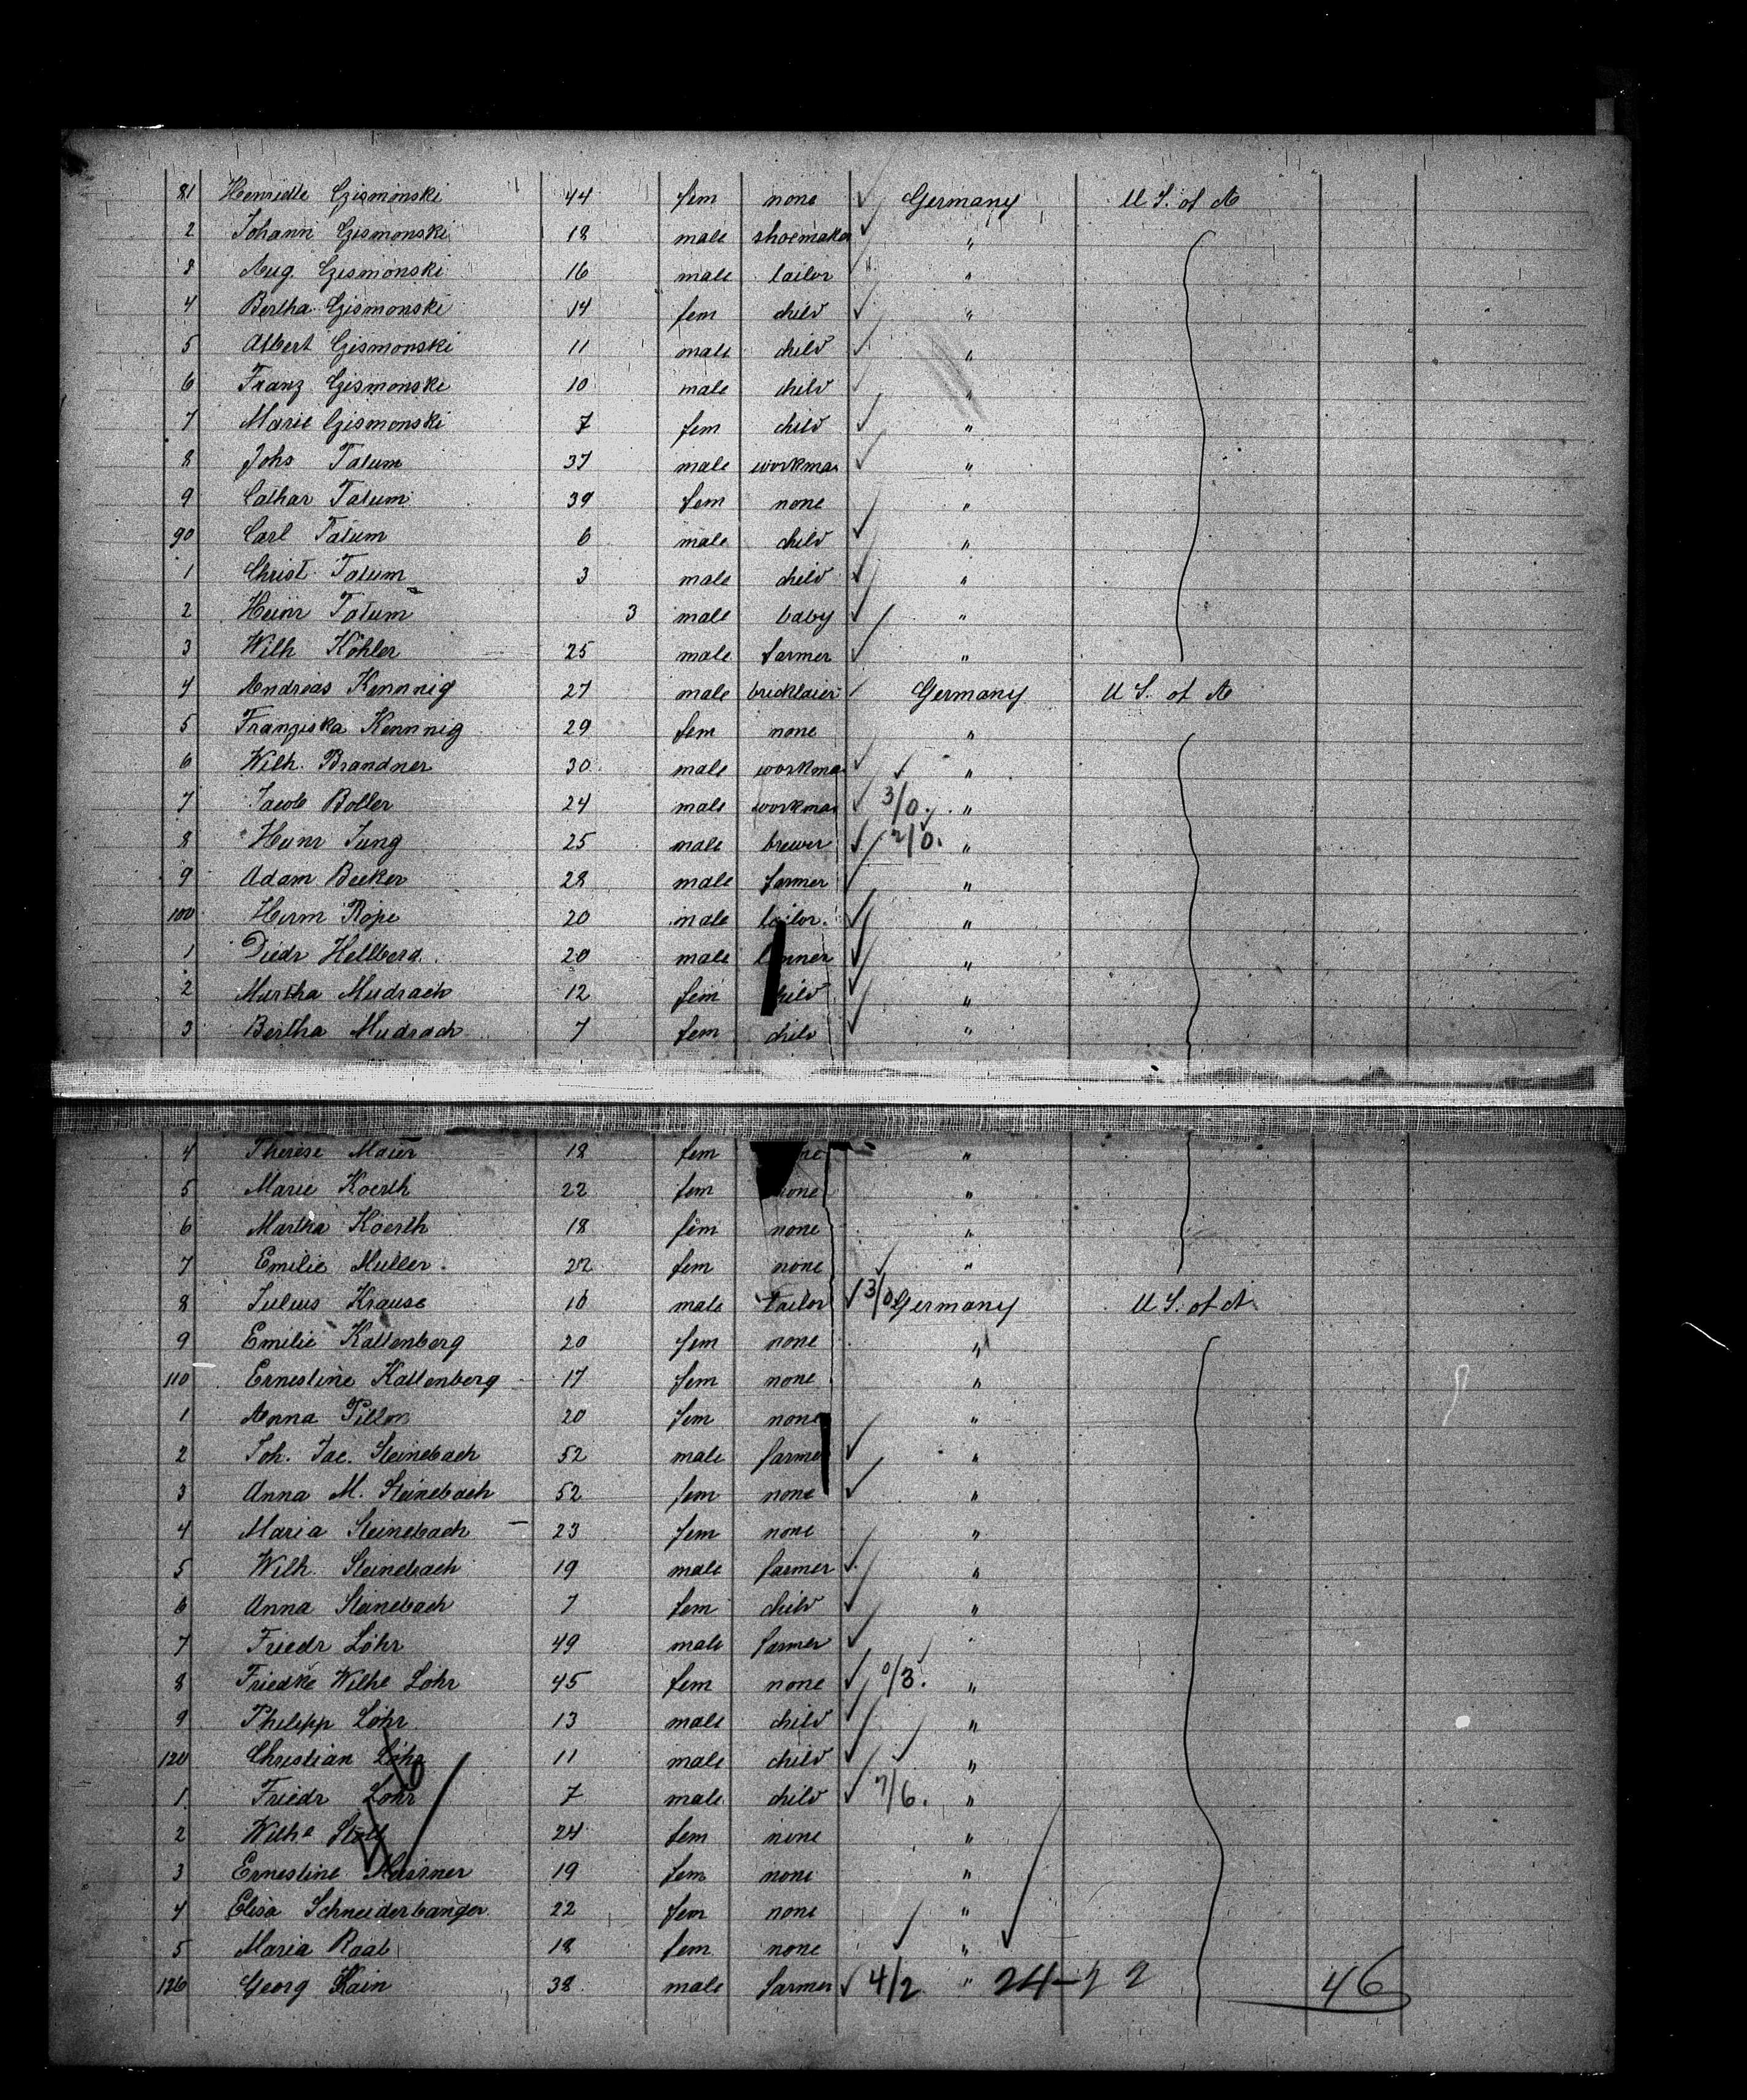 81 Henriette Gzismonski 44 fem none ✓ Germany U S. of A
2 Johann Gzismonski 18 male shoemaker ✓ "
3 Aug. Gzismonski 16 male tailor "
4 Bertha Gzismonski 14 fem child ✓ "
5 Albert Gzismonski 11 male child ✓ "
6 Franz Gzismonski 10 male child ✓ "
7 Marie Gzismonski 7 fem child ✓ "
8 Johs Tatum 37 male workman ✓ "
9 Cathar Tatum 39 fem none "
90 Carl Tatum 6 male child ✓ "
1 Christ. Tatum 3 male child ✓ "
2 Heinr Tatum 3 male baby ✓ "
3 Wilh Köhler 25 male farmer ✓ "
4 Andreas Kennnig 27 male bricklaier ✓ Germany U S. of A
5 Franziska Kennnig 29 fem none "
6 Wilh. Brandner 30 male workma ✓ ✓ "
7 Jacob Boller 24 male workman ✓ 3/0. "
8 Heinr Jung 25 male brewer ✓ 2/0. "
9 Adam Becker 28 male farmer ✓ "
100 Herm Röpe 20 male tailor. ✓ "
1 Diedr Hellberg 20 male tanner ✓ "
2 Martha Mudrach 12 fem child ✓ "
3 Bertha Mudrach 7 fem child ✓ "
4 Therese Maier 18 fem "
5 Marie Koerth 22 fem none "
6 Martha Koerth 18 fem none "
7 Emilie Muller 22 fem none ✓ "
8 Julius Krause 16 male Tailor ✓ 3/0 Germany U S. of A
9 Emilie Kaltenberg 20 fem none "
110 Ernestine Kaltenberg 17 fem none "
1 Anna 20 fem none "
2 Joh. Jac. Steinebach 52 male farmer ✓ "
3 Anna M. Steinebach 52 fem none ✓ "
4 Maria Steinebach 23 fem none "
5 Wilh. Steinebach 19 male farmer ✓ "
6 Anna Steinebach 7 fem child ✓ "
7 Friedr Löhr 49 male farmer ✓
8 Friedke Wilhe Löhr 45 fem none ✓ 0/3. "
9 Philipp Löhr 13 male child ✓ "
120 Christian Löhr 11 male child ✓ ✓ "
1 Friedr Löhr 7 male child ✓ 7/6. "
2 Wilhe Stoll 24 fem none "
3 Ernestine 19 fem none "
4 Elisa Schneiderbanger 22 fem none "
5 Maria Raab 18 fem none ✓ " ✓
126 Georg Kain 38 male farmer ✓ 4/2 " 24-22 46